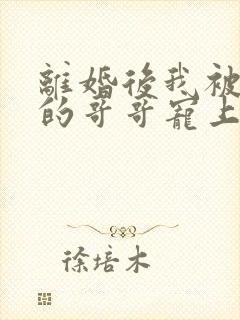 離婚後我被
的哥哥寵上
徐培木